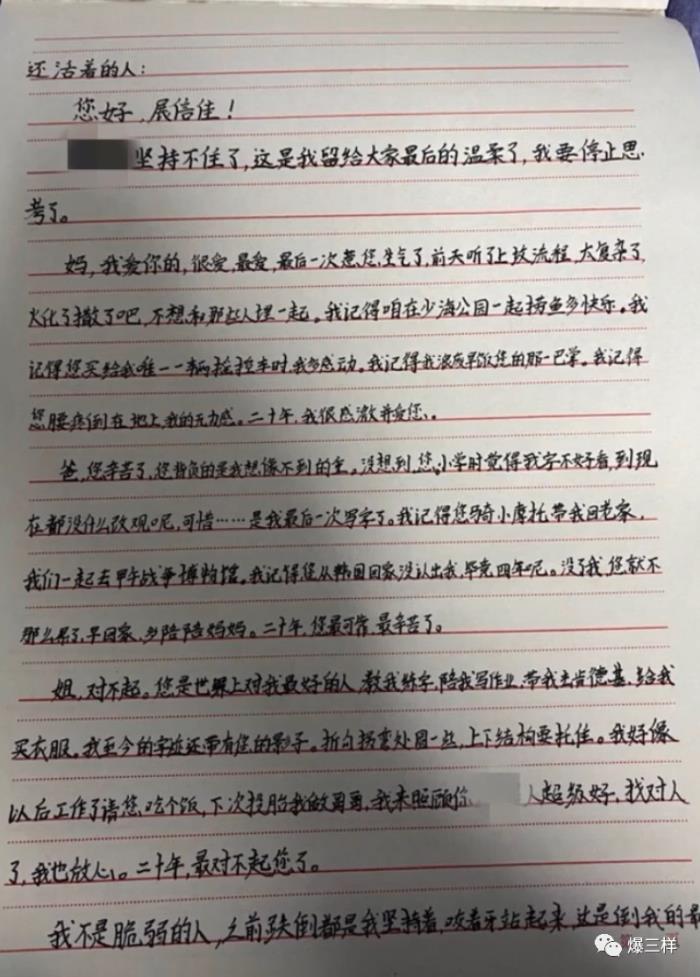 还活着的人：
您好，展信佳！
坚持不住了，这是我留给大家最后的温柔了，我要停止思
考了。
妈，我爱你的，很爱，最爱，最后一次惹您生气了，前天听了上坟流程，太复杂了，
火化了撒了吧，不想和那些人埋一起。我记得咱在少海公园一起捞鱼多快乐。我
记得您买给我唯一一辆拉车时，我多感动。我记得我浪费早饭您的那一巴掌。我记得
您腰疼倒在地上，我的无力感。二十年，我很感激并爱您、。
爸，您辛苦了，您背负的是我想像不到的重。没想到，您小学时觉得我字不好看，到现
在都没什么改观呢，可惜……是我最后一次写字了。我记得您骑小摩托带我回老家，
我们一起去甲午战争博物馆。我记得您从韩国回家没认出我，毕竟四年呢。没了我，您就不
那么累了，早回家，多陪陪妈妈。二十年，您最可靠，最辛苦了。
姐，对不起。您是世界上对我最好的人，教我练字，陪我写作业，带我去肯德基，给我
买衣服。我至今的字迹还带有您的影子。折勾拐弯处圆一些，上下结构要托住。我好像
以后工作了请您吃个饭，下次投胎我做哥哥，我来照顾你 人超级好，找对人
了，我也放心。二十年，最对不起您了。
我不是脆弱的人，之前跌倒都是我坚持着，咬着牙站起来，这是倒我的最
爆三样